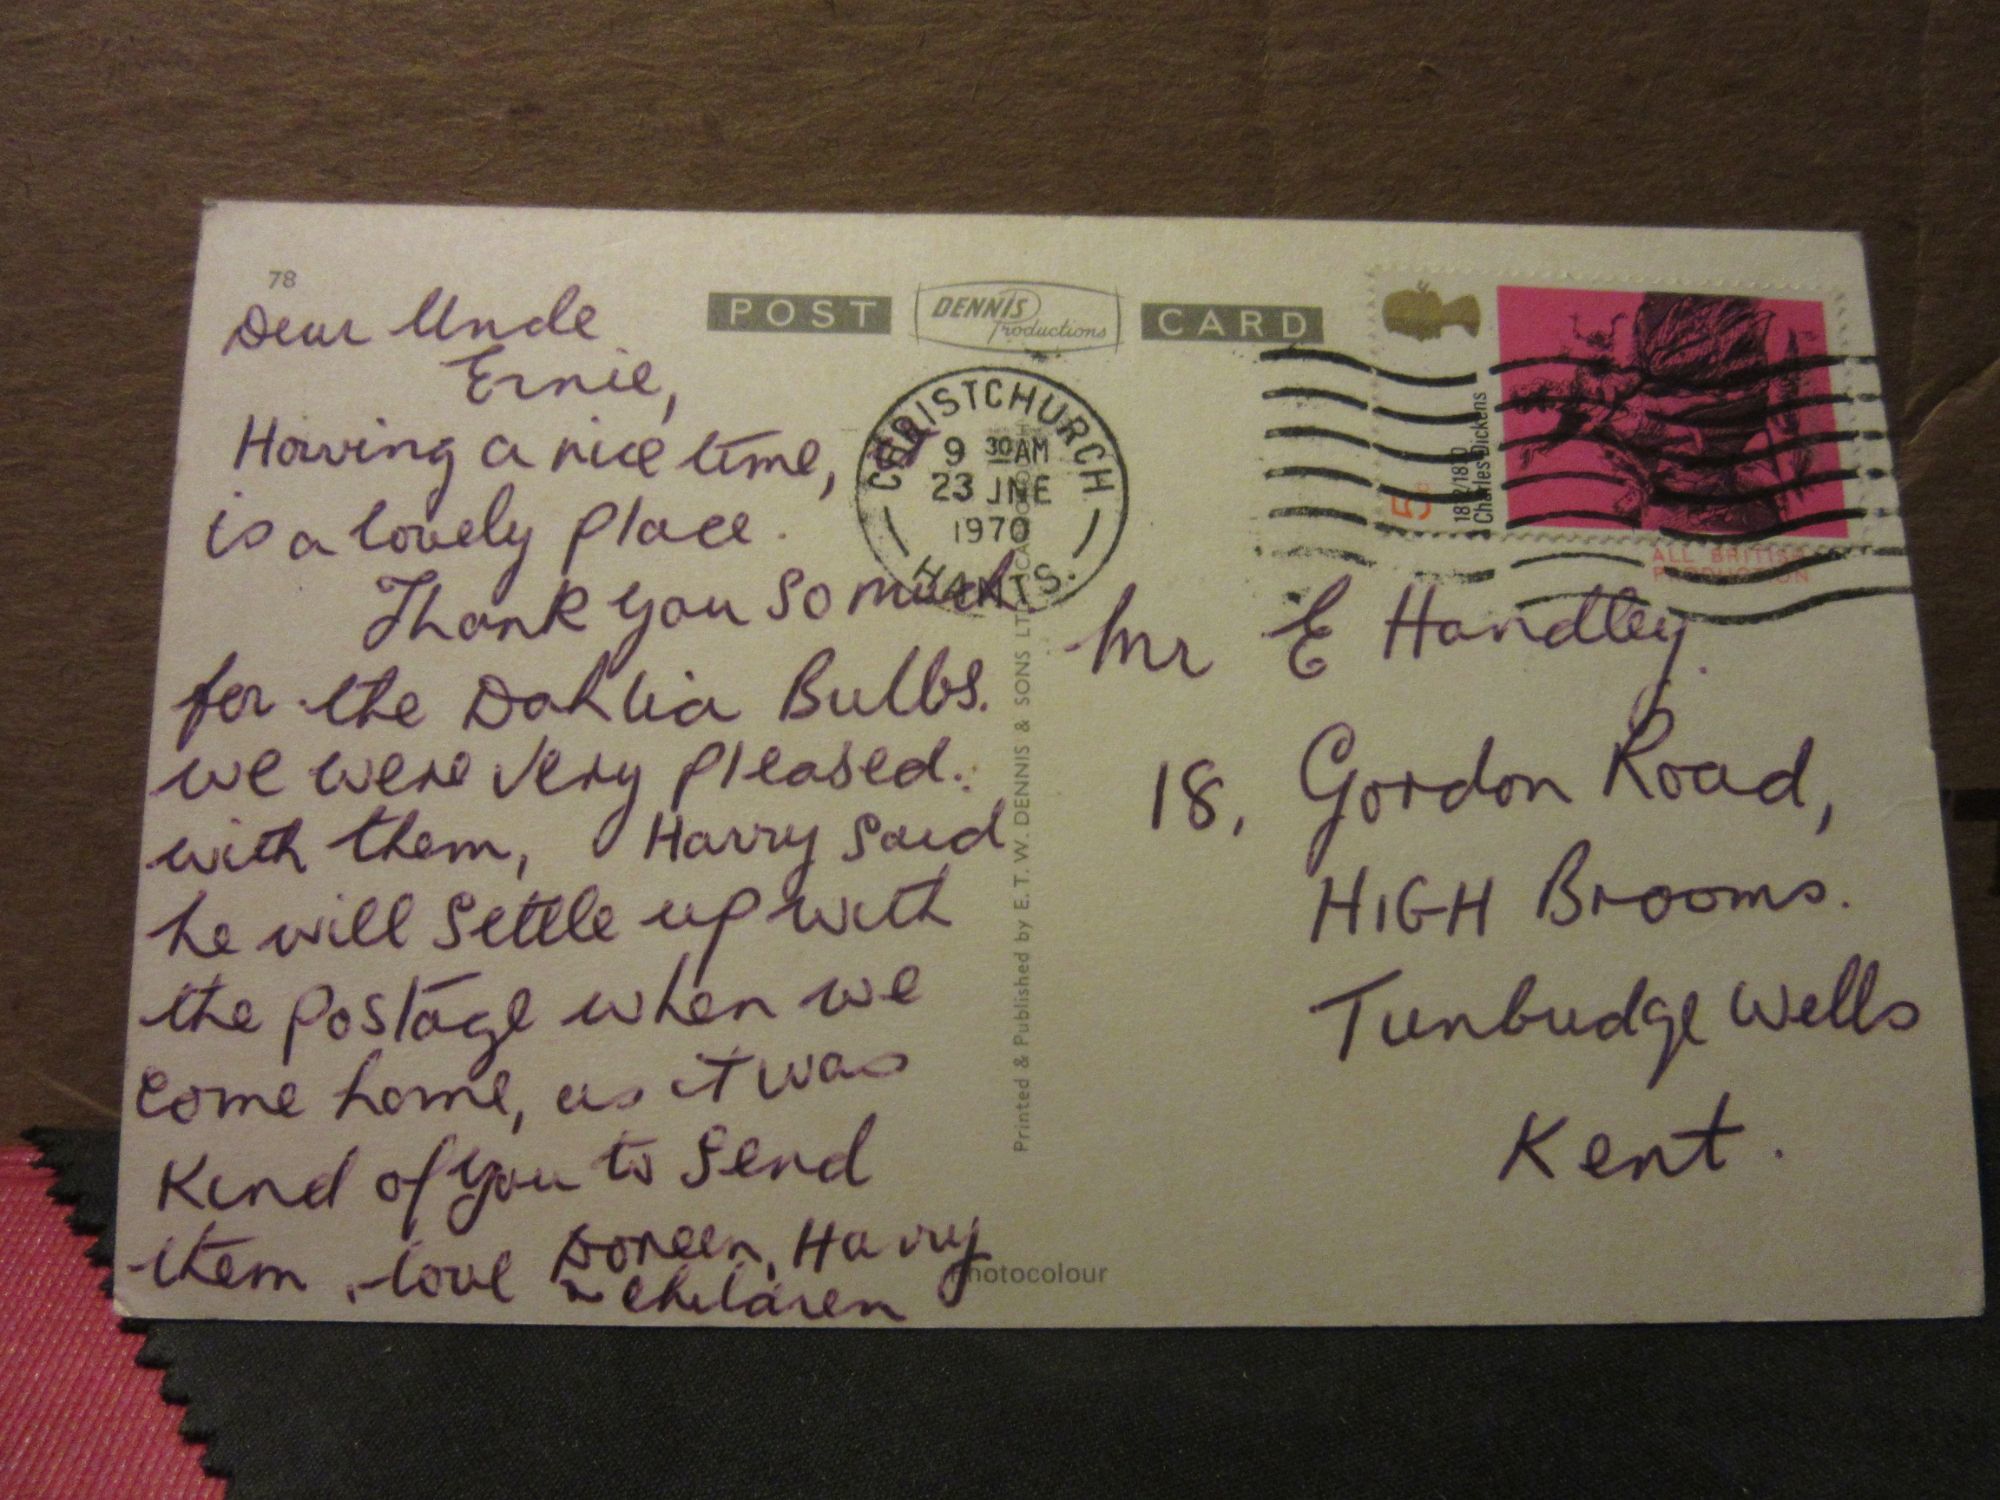 78
POST DENNIS Productions CARD
Dear Uncle
Ernie,
Having a nice time,
is a lovely place.
Thank you so much
for the Dahlia Bulbs.
we were very pleased.
with them, Harry said
he will settle up with
the postage when we
come home, as it was
kind of you to send
them, love Doreen, Harry
& children
CHRISTCHURCH
9 30 AM
23 JNE
1970
HANTS.
Printed & Published by E. T. W. DENNIS & SONS LTD
Photocolour
5d
1812/1870
Charles Dickens
ALL BRITISH
PRODUCTION
Mr E Handley.
18, Gordon Road,
HIGH Brooms.
Tunbudge Wells
Kent.